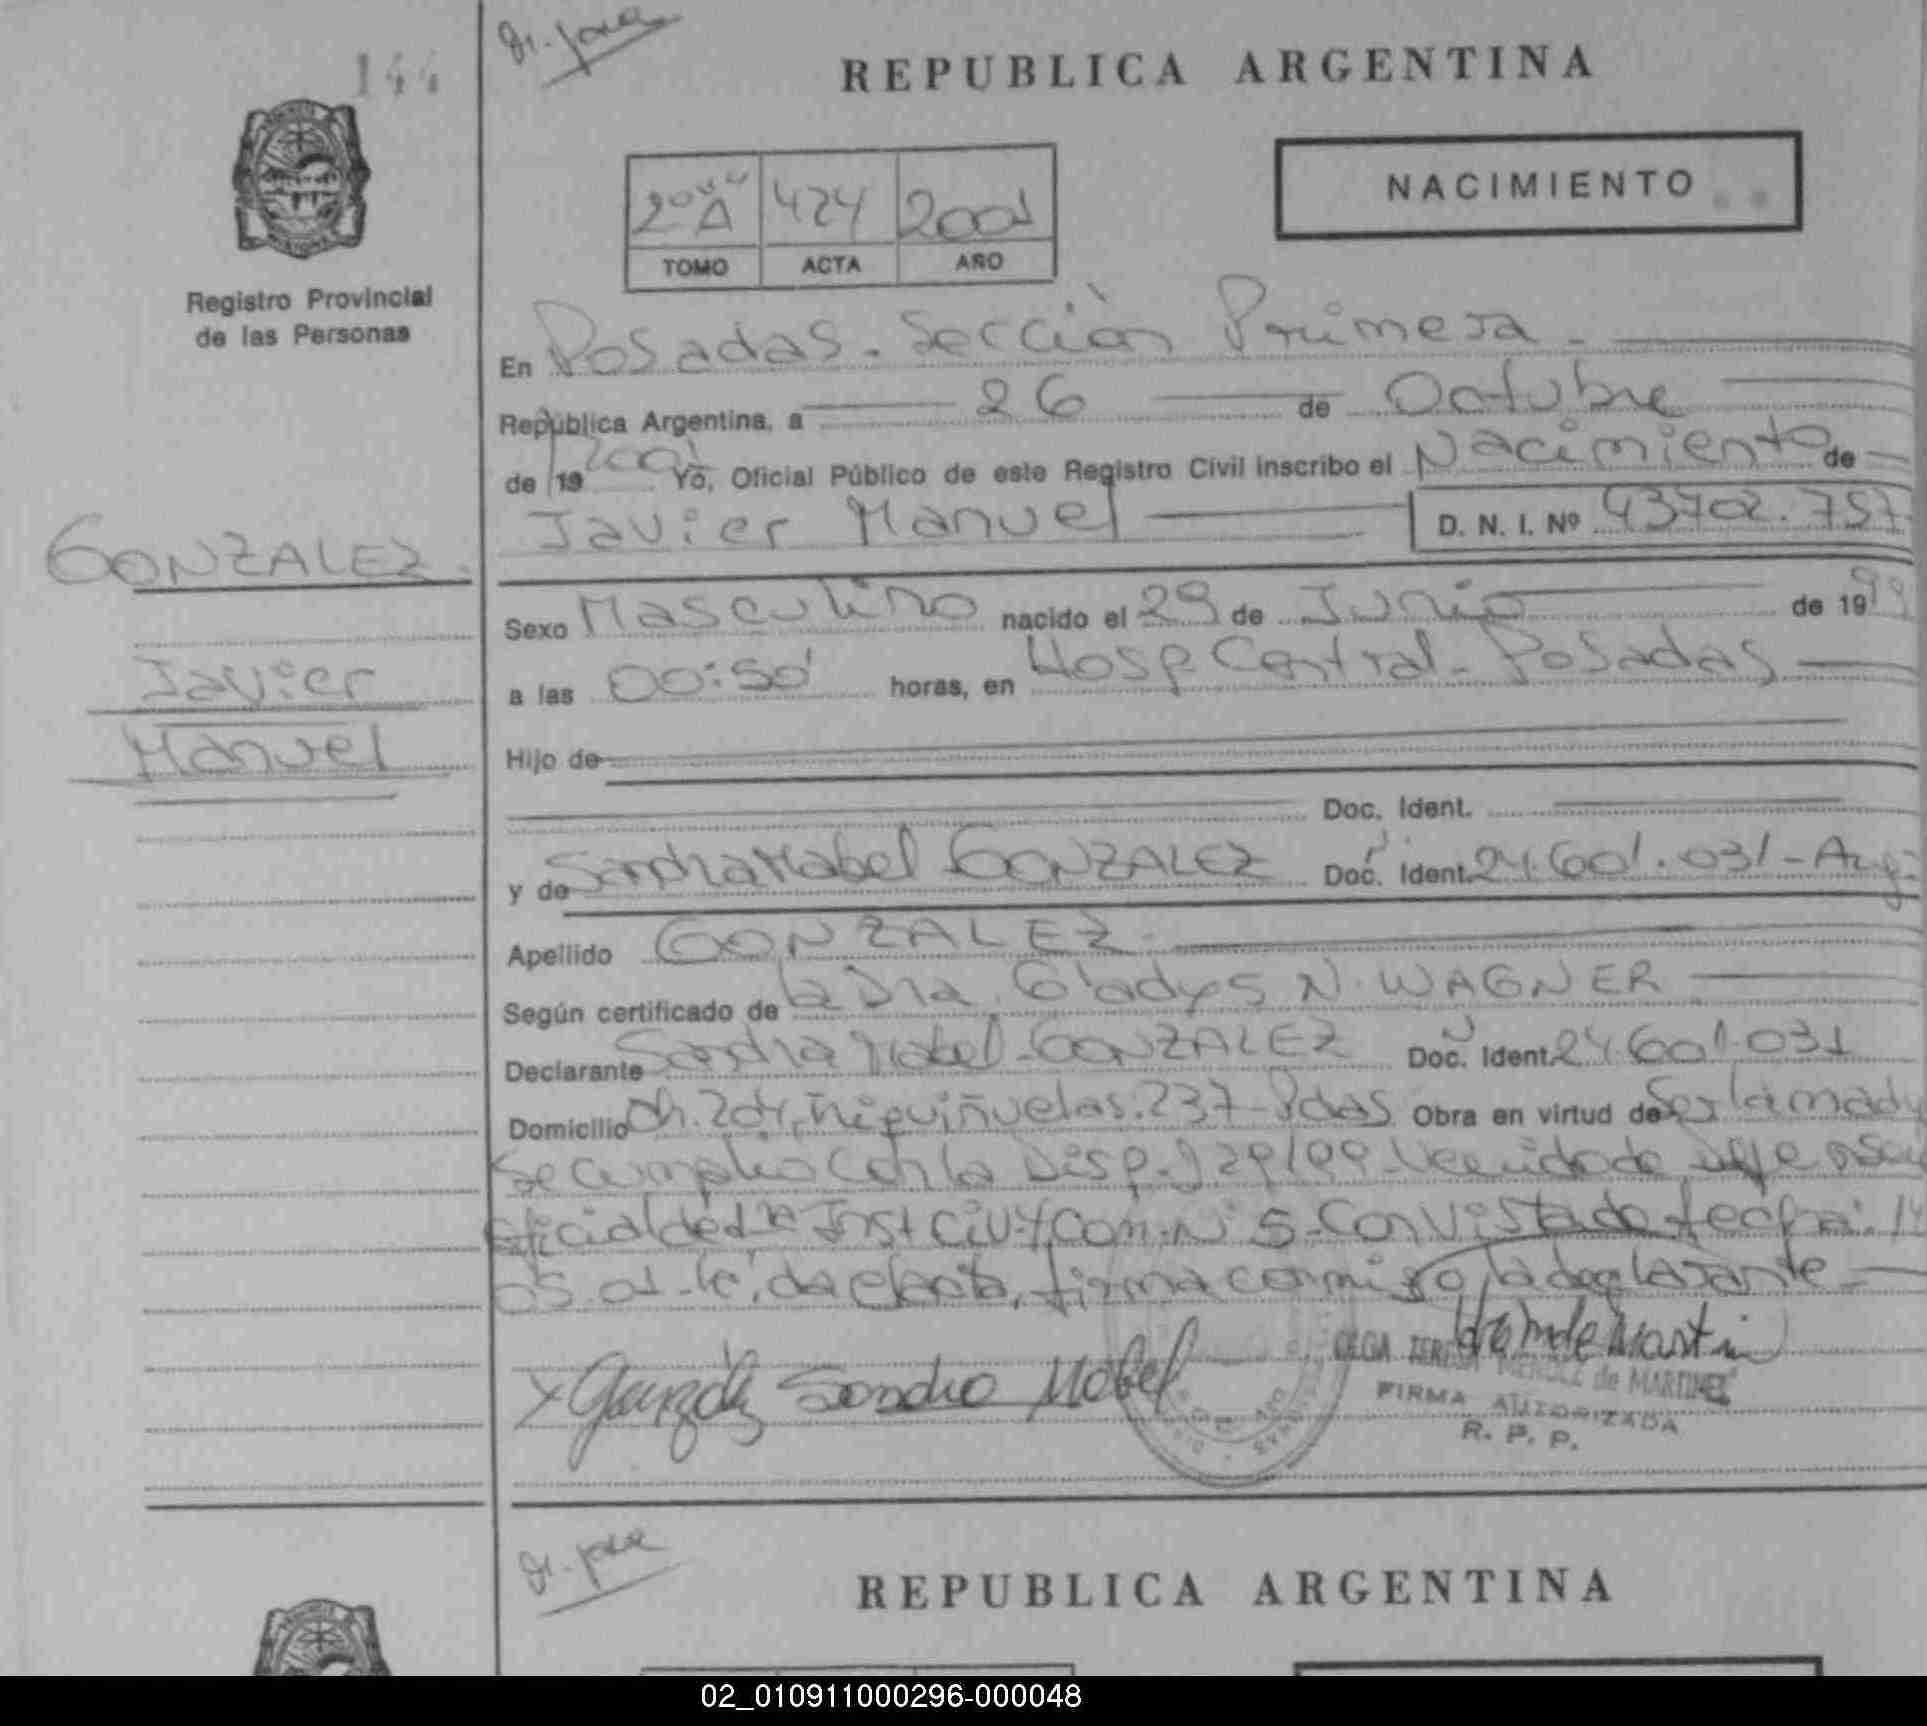 144
REPUBLICA ARGENTINA
NACIMIENTO
2º A 424 2001
TOMO ACTA AÑO
Registro Provincial
de las Personas
En Posadas. Sección Primera.
República Argentina, a 26 de Octubre
de 19 2001 Yo, Oficial Público de este Registro Civil inscribo el Nacimiento de
Javier Manuel D. N. I. Nº 43702.757
GONZALEZ.
Javier
Manuel
Sexo Masculino nacido el 29 de Junio de 1999
a las 00:50' horas, en Hosp Central - Posadas
Hijo de
Doc. Ident.
y de Sandra Mabel GONZALEZ Doc. Ident. 24.601.031 - Arg.
Apellido GONZALEZ
Según certificado de la Dra. Gladys N. WAGNER
Declarante Sandra Mabel GONZALEZ Doc. Ident. 24.601.031
Domicilio Ch. 204, 237 - Pdas Obra en virtud de Ser la madre
Se cumplio con la Disp.
Oficial de 1ra Inst Civ. y Com. Nº 5 - Con Vista de fecha: 14
05.01 firma conmigo, la declarante
X González Sandra Mabel
OLGA TERESA MENDEZ de MARTINEZ
FIRMA AUTORIZADA
R. P. P.
REPUBLICA ARGENTINA
02_010911000296-000048